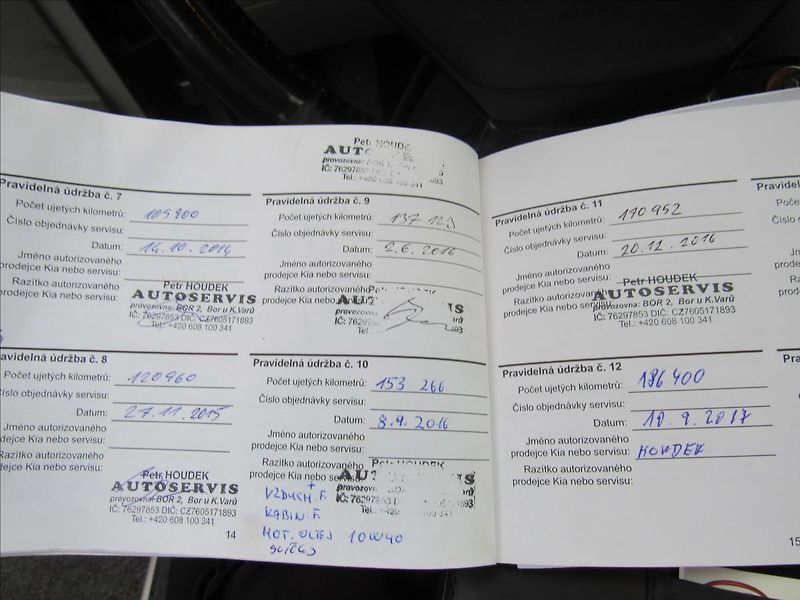 Petr HOUDEK
provozovna: BOR 2,
IČ: 76297853
Tel.: +420 608 100 341
Pravidelná údržba č. 7
Počet ujetých kilometrů: 105900
Číslo objednávky servisu:
Datum: 14.10.2014
Jméno autorizovaného
prodejce Kia nebo servisu:
Razítko autorizovaného
prodejce Kia nebo servisu:
Petr HOUDEK
AUTOSERVIS
provozovna: BOR 2, Bor u K.Varů
IČ: 76297853 DIČ: CZ7605171893
Tel.: +420 608 100 341
Pravidelná údržba č. 8
Počet ujetých kilometrů: 120960
Číslo objednávky servisu:
Datum: 27.11.2015
Jméno autorizovaného
prodejce Kia nebo servisu:
Razítko autorizovaného
prodejce Kia nebo servisu:
Petr HOUDEK
AUTOSERVIS
provozovna: BOR 2, Bor u K.Varů
IČ: 76297853 DIČ: CZ7605171893
Tel.: +420 608 100 341
14
Pravidelná údržba č. 9
Počet ujetých kilometrů: 137 123
Číslo objednávky servisu:
Datum: 2.6.2016
Jméno autorizovaného
prodejce Kia nebo servisu:
Razítko autorizovaného
prodejce Kia nebo
Pravidelná údržba č. 10
Počet ujetých kilometrů: 153 266
Číslo objednávky servisu:
Datum: 8.9.2016
Jméno autorizovaného
prodejce Kia nebo servisu:
Razítko autorizovaného
prodejce Kia nebo
Petr HOUDEK
VZDUCH. F. +
KABIN. F.
MOT. OLEJ 10W40
Pravidelná údržba č. 11
Počet ujetých kilometrů: 170952
Číslo objednávky servisu:
Datum: 20.12.2016
Jméno autorizovaného
prodejce Kia nebo servisu:
Razítko autorizovaného
prodejce Kia nebo
Petr HOUDEK
AUTOSERVIS
provozovna: BOR 2, Bor u K.Varů
IČ: 76297853 DIČ: CZ7605171893
Tel.: +420 608 100 341
Pravidelná údržba č. 12
Počet ujetých kilometrů: 186400
Číslo objednávky servisu:
Datum: 18.9.2017
Jméno autorizovaného
prodejce Kia nebo servisu: HOUDEK
Razítko autorizovaného
prodejce Kia nebo servisu:
15